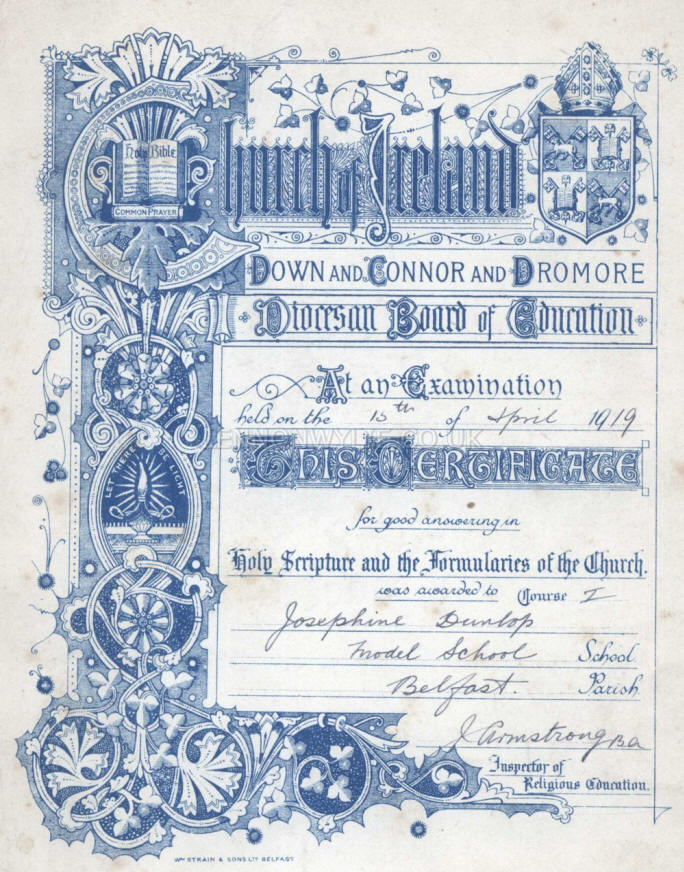 Church of Ireland
Holy Bible
COMMON PRAYER
DOWN AND CONNOR AND DROMORE
Diocesan Board of Education
At an Examination
held on the 15th of April 1919
THIS CERTIFICATE
LET THERE BE LIGHT
for good answering in
Holy Scripture and the Formularies of the Church.
was awarded to Course I
Josephine Dunlop
Model School School
Belfast. Parish
J Armstrong BA
Inspector of
Religious Education.
WM STRAIN & SONS LTD BELFAST